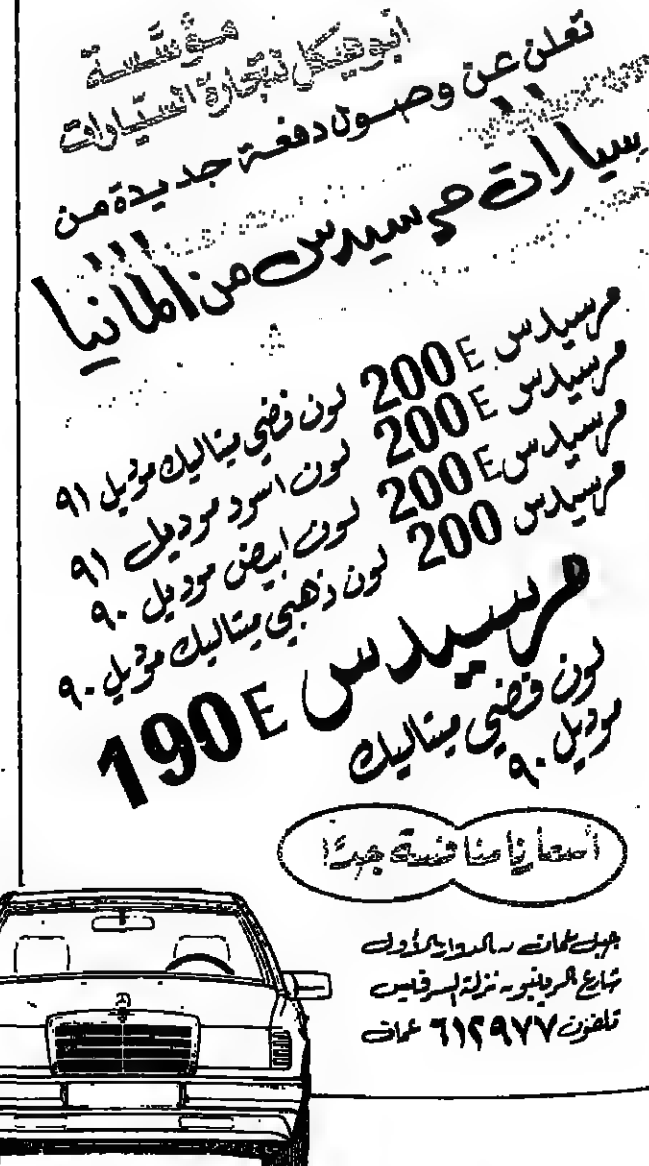 مؤسسة
ابوهيكل لتجارة السيارات
تعلن عن وصول دفعة جديدة من
سيارات مرسيدس من المانيا
مرسيدس 200 E لون فضي ميتاليك موديل ٩١
مرسيدس 200 E لون اسود موديل ٩١
مرسيدس 200 E لون ابيض موديل ٩٠
مرسيدس 200 لون ذهبي ميتاليك موديل ٩٠
مرسيدس 190 E
لون فضي ميتاليك
موديل ٩٠
أسعارنا منافسة جدًا
جبل عمان - الدوار الأول
شارع - نزلة السرفيس
تلفون ٦١٢٩٧٧ عمان